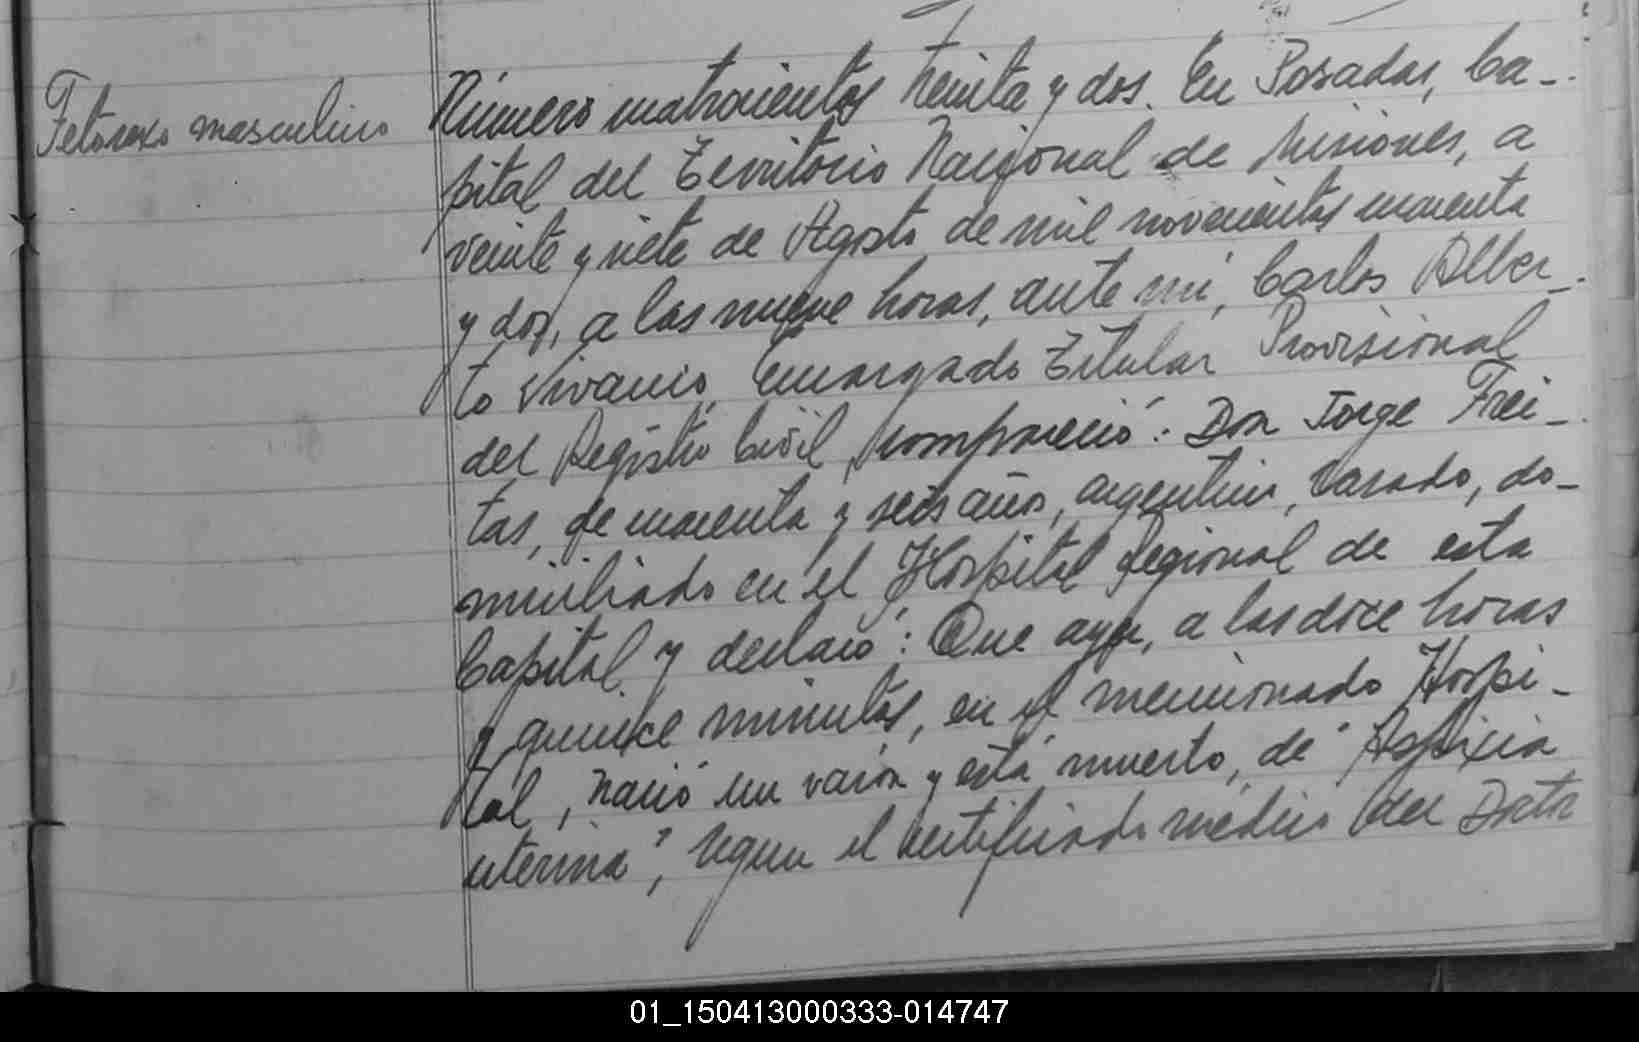 Feto sexo masculino
Número cuatrocientos treinta y dos. En Posadas, Ca-
pital del Territorio Nacional de Misiones, a
veinte y siete de Agosto de mil novecientos cuarenta
y dos, a las nueve horas, ante mí, Carlos Alber-
to Vivanco, Encargado Titular Provisional
del Registro Civil, compareció: Don Jorge Frei-
tas, de cuarenta y seis años, argentino, casado, do-
miciliado en el Hospital Regional de esta
Capital y declaró: Que ayer, a las doce horas
y quince minutos, en el mencionado Hospi-
tal, nació un varón y está muerto, de "Asfixia
uterina", según el certificado médico del Doctor
01_150413000333-014747